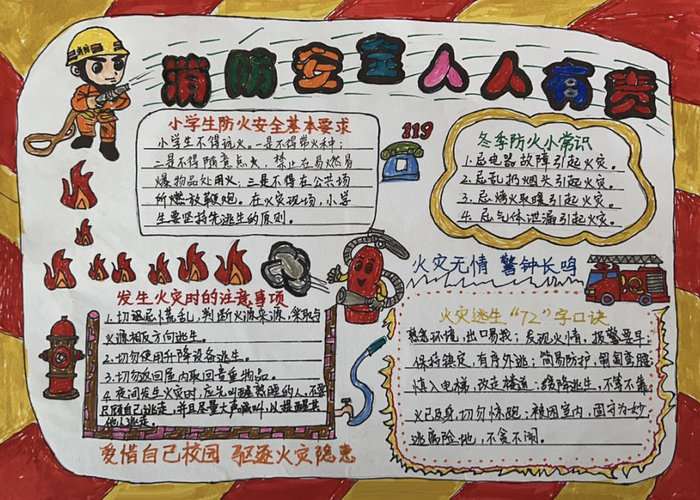 消防安全人人有责
小学生防火安全基本要求
小学生不得玩火。一是不得带火种；
二是不得随意点火，禁止在易燃易
爆物品处用火；三是不得在公共场
所燃放鞭炮。在火灾现场，小学
生要坚持先逃生的原则。
119
冬季防火小常识
1.忌电器故障引起火灾。
2.忌乱扔烟头引起火灾。
3.忌烤火取暖引起火灾。
4.忌气体泄漏引起火灾。
火灾无情 警钟长鸣
发生火灾时的注意事项
1.切忌慌乱，判断火源来源，采取与
火源相反方向逃生。
2.切勿使用升降设备逃生。
3.切勿返回屋内取回贵重物品。
4.夜间发生火灾时，应先叫醒熟睡的人，不要
只顾自己逃走，并且尽量大声喊叫，以提醒其
他人逃走。
火灾逃生“72”字口诀
熟悉环境，出口易找；发现火情，报警要早；
保持镇定，有序外逃；简易防护，匍匐弯腰
慎入电梯，改走楼道；缓降逃生，不等不靠
火已及身，切勿惊跑；被困室内，固守为妙
逃离险地，不贪不闹。
爱惜自己校园 驱逐火灾隐患